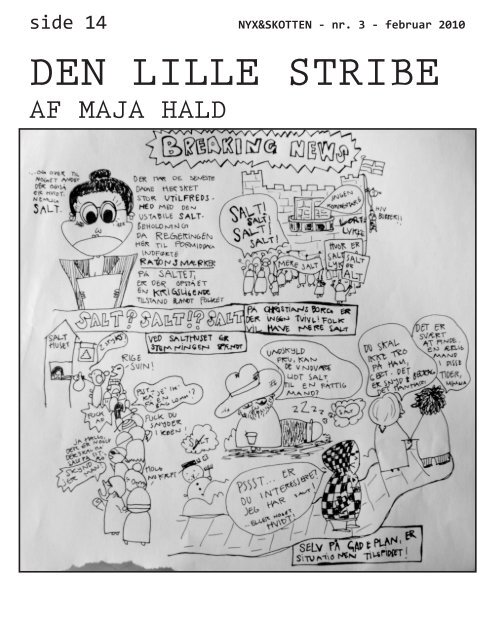 side 14
NYX&SKOTTEN - nr. 3 - februar 2010
DEN LILLE STRIBE
AF MAJA HALD
BREAKING NEWS
...OG OVER TIL
NOGET ANDET
DER OGSÅ
ER HVIDT.
NEMLIG
SALT.
DER HAR DE SENESTE
DAGE HERSKET
STOR UTILFREDS-
HED MED DEN
USTABILE SALT-
BEHOLDNING
DA REGERINGEN
HER TIL FORMIDDAG
INDFØRTE
RATIONSMÆRKER
PÅ SALTET,
ER DER OPSTÅET
EN KRIGSLIGENDE
TILSTAND BLANDT FOLKET
SALT!
SALT!
SALT!
SALT!
INGEN
KOMMENTARER
MERE SALT
HVOR ER
SALT
SALT
SALT? SALT!? SALT
PÅ CHRISTIANSBORG ER
DER INGEN TVIVL! FOLK
VIL HAVE MERE SALT
SALT
HUSET
VED SALTHUSET ER
STEMNINGEN SPÆNDT
RIGE
SVIN!
FUCK DU
SNYDER
I KØEN!
UNDSKYLD
FRU, KAN
DE UNDVÆRE
LIDT SALT
TIL EN FATTIG
MAND?
ZZZZ
DU SKAL
IKKE TRO
PÅ HAM,
GERT. DET
DET ER
SVÆRT
AT FINDE
EN ÆRLIG
MAND
I DISSE
TIDER,
SALT
HOLD
PSSST... ER
DU INTERESSERET?
JEG HAR SALT!
...ELLER NOGET
HVIDT!
SELV PÅ GADEPLAN, ER
SITUATIONEN TILSPIDSET!